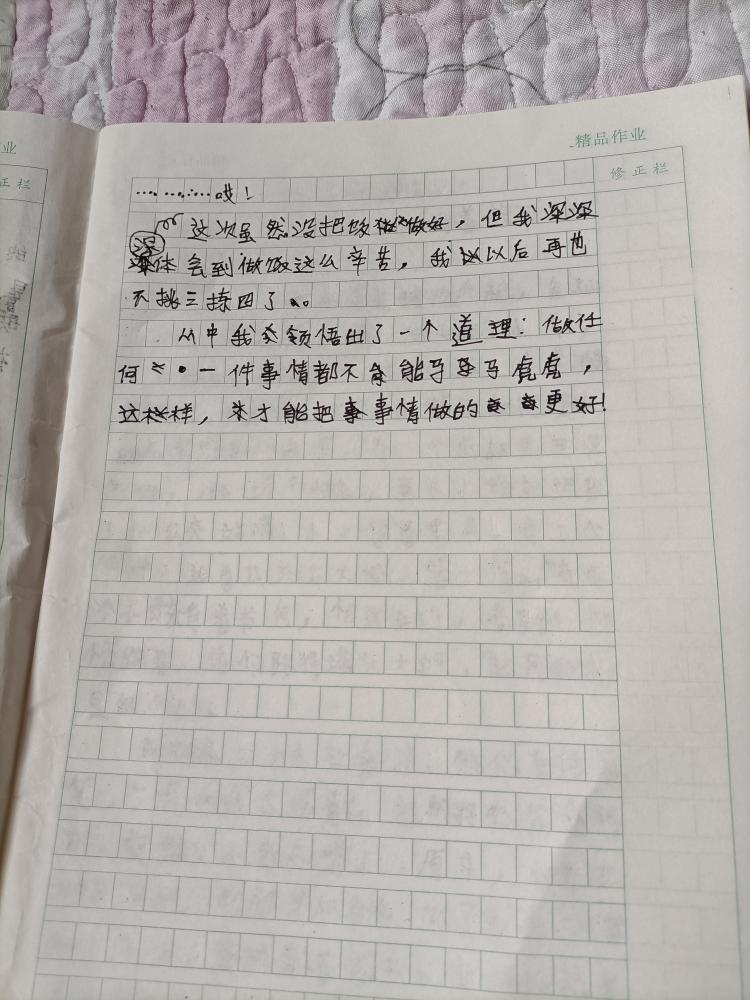 业
精品作业
正栏
修正栏
………… 哎！
这次虽然没把饭做好，但我深深
深体会到做饭这么辛苦，我以后再也
不挑三拣四了。
从中我领悟出了一个道理：做任
何一件事情都不能马马虎虎，
这样，才能把事情做的更好！